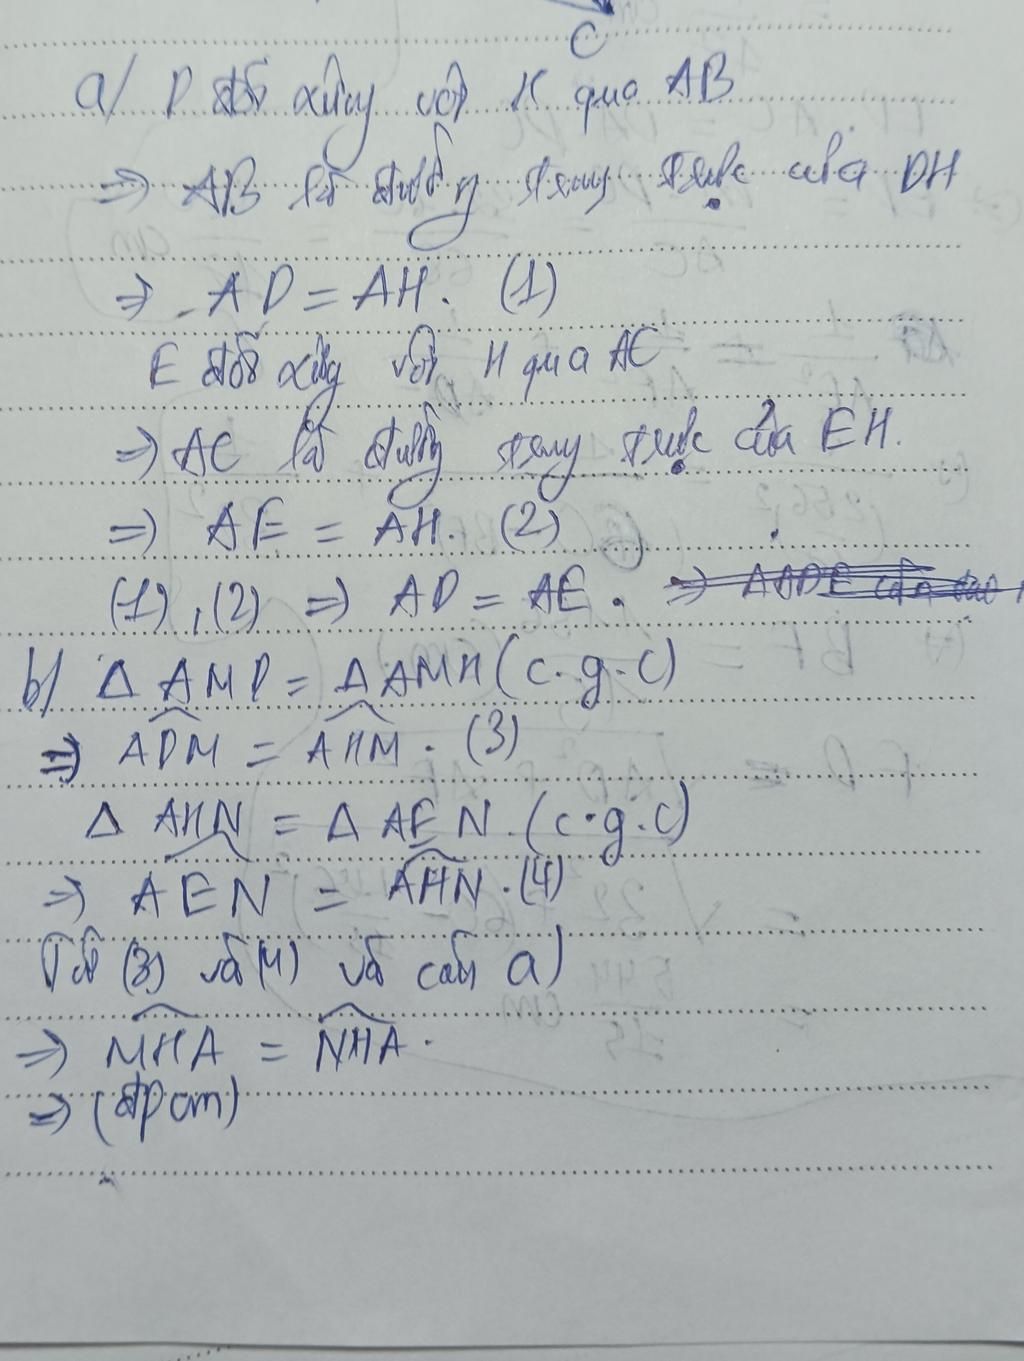 C
a/ D đối xứng với H qua AB
⇒ AB là đường trung trực của DH
⇒ AD = AH. (1)
E đối xứng với H qua AC
⇒ AC là đường trung trực của EH.
⇒ AE = AH. (2)
(1), (2) ⇒ AD = AE. ⇒ ΔADE cân
b/ Δ AMD = Δ AMH (c.g.c)
⇒ ADM = AHM. (3)
Δ AHN = Δ AEN. (c.g.c)
⇒ AEN = AHN. (4)
Từ (3) và (4) và câu a)
⇒ MHA = NHA.
⇒ (đpcm)